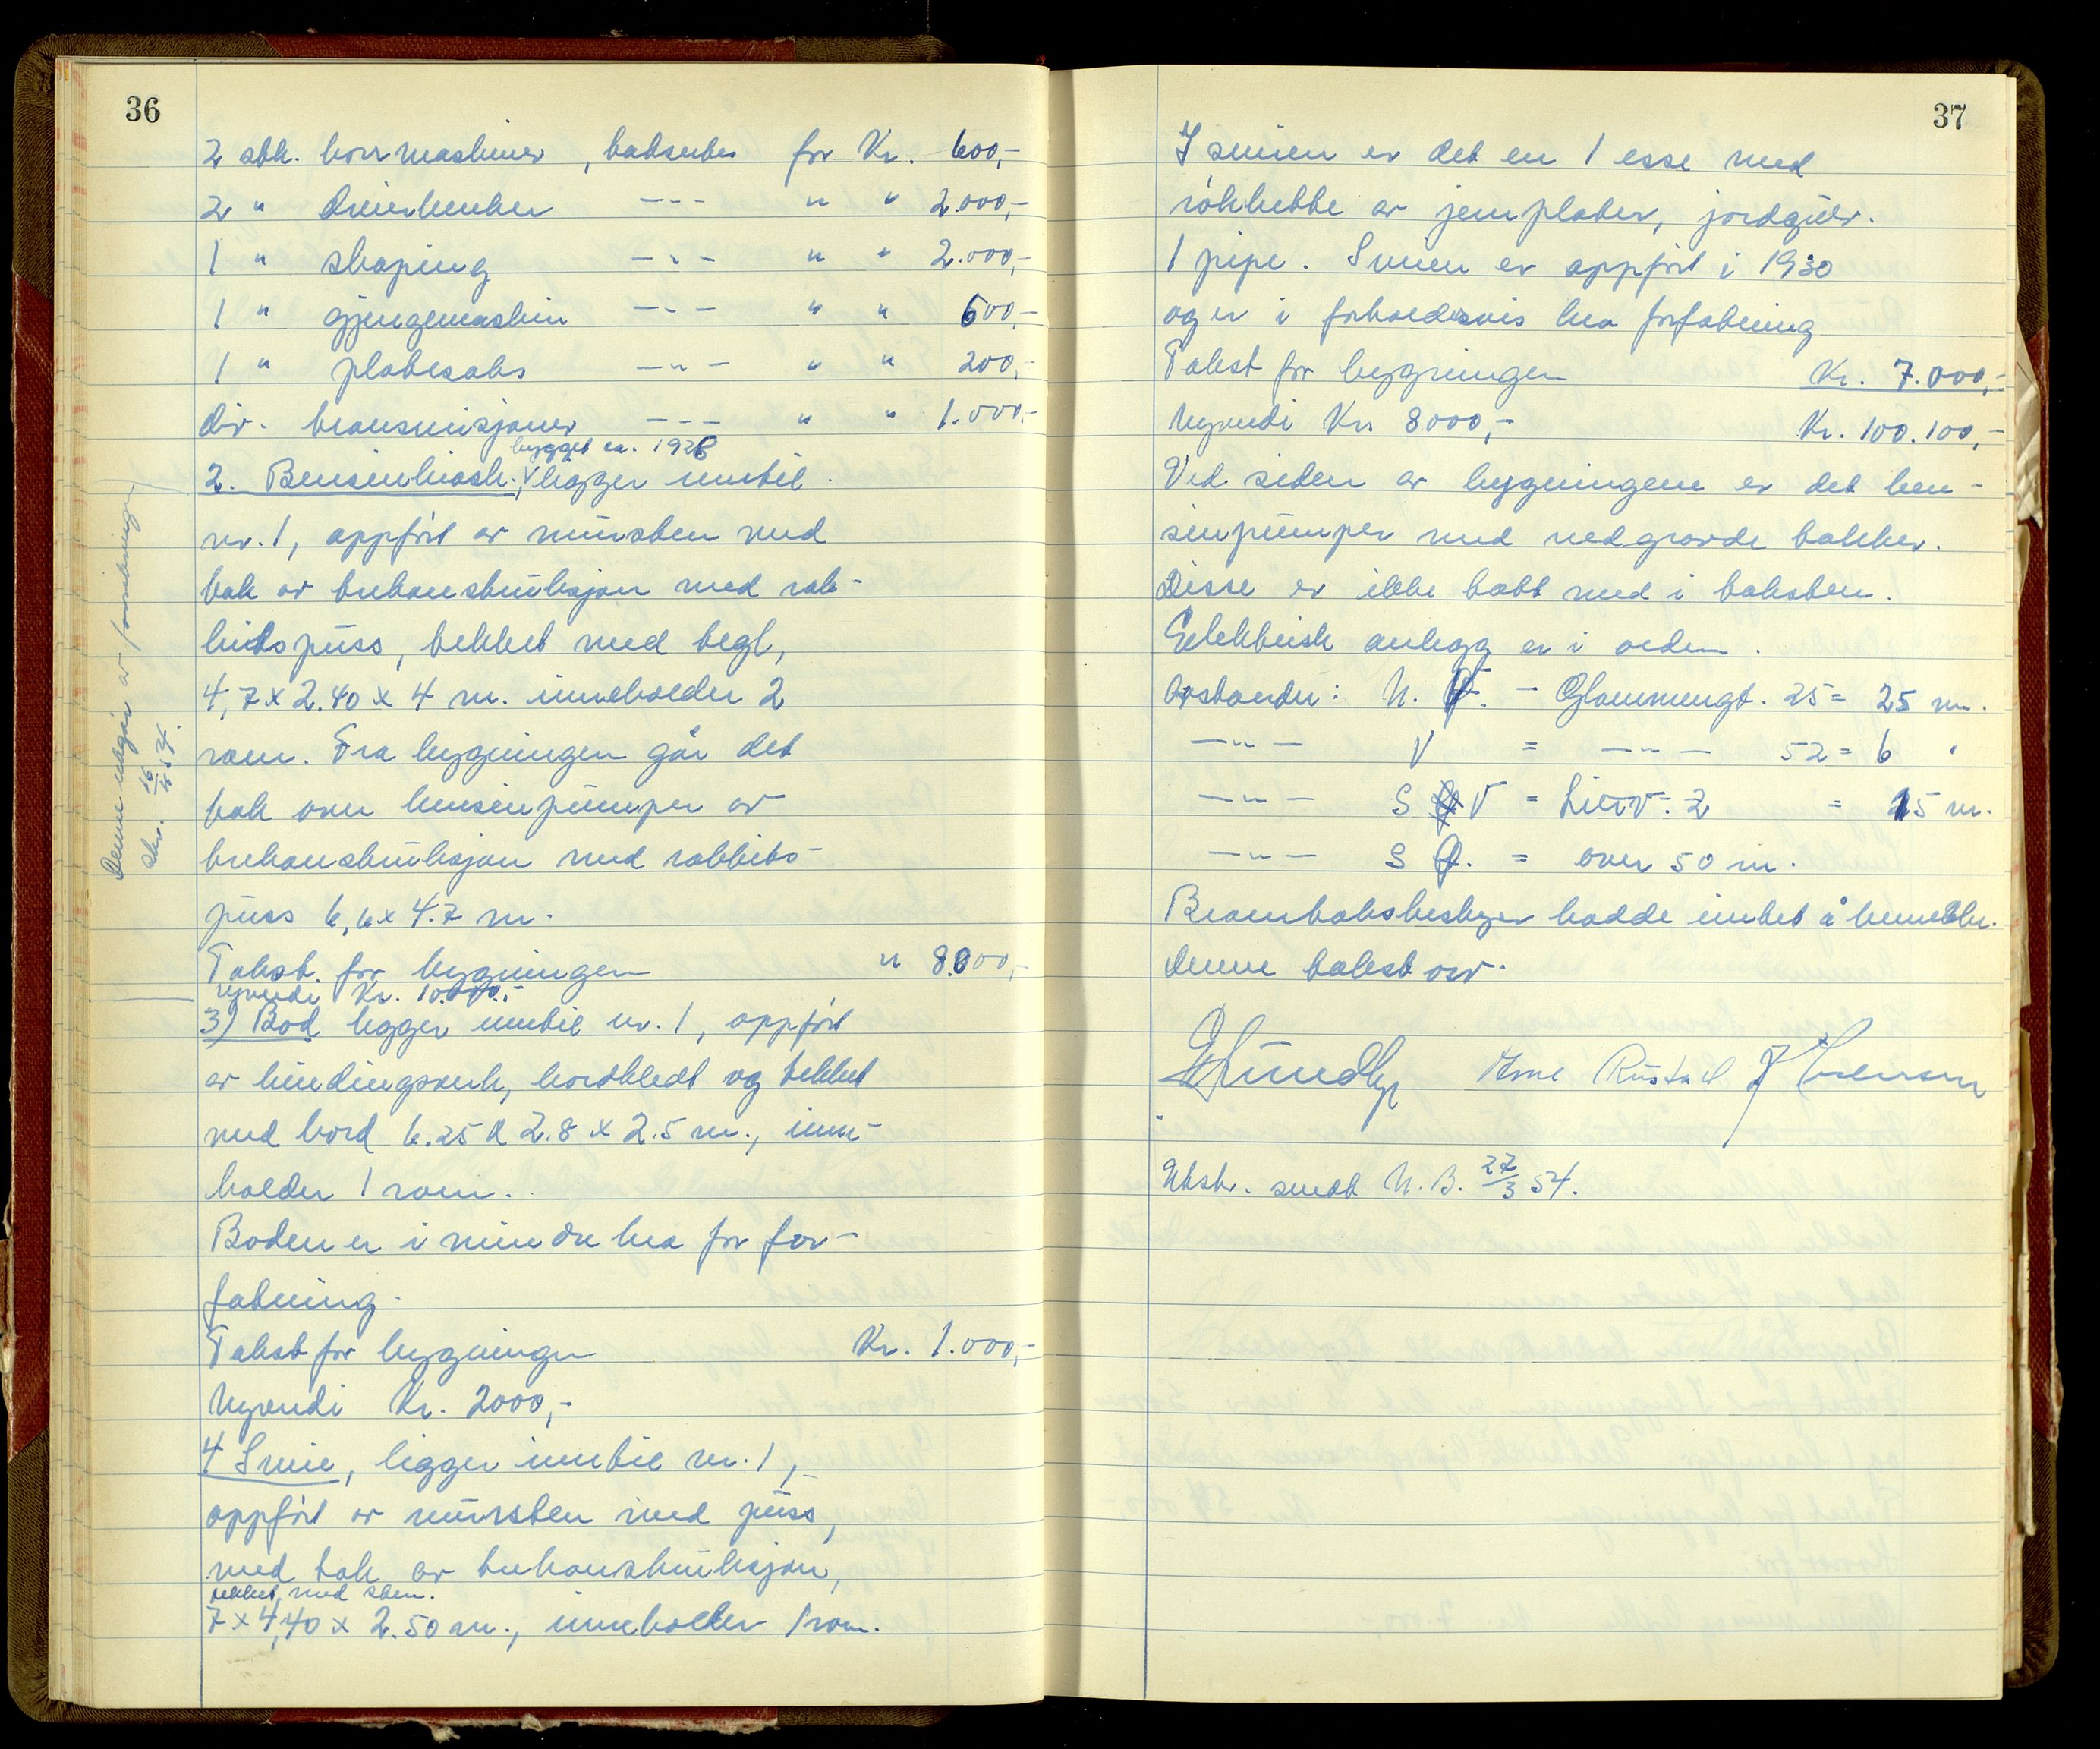 36
2 stk. borrmaskiner, takseres for Kr. 600,-
2 " dreierbenker -"- " " 2.000,-
1 " shaping -"- " " 2.000,-
1 " gjengemaskin -"- " " 600,-
1 " platesaks -"- " " 200,-
div. transmisjoner -"- " " 1.000,-
bygget ca. 1928
2. Bensinkiosk. ligger inntil
nr. 1, oppført av mursten med
tak av trekonstruksjon med rab-
bitspuss, tekket med tegl,
4,7 x 2.40 x 4 m. inneholder 2
rom. Fra bygningen går det
tak over bensinpumper av
trekonstruksjon med rabbits-
puss 6,6 x 4.7 m.
Takst for bygningen " 8.000,-
nyverdi Kr. 10.000,-
3) Bod ligger inntil nr. 1, oppført
av bindingsverk, bordkledt og tekket
med bord 6.25 x 2.8 x 2.5 m., inne-
holder 1 rom.
Boden er i mindre bra for for-
fatning.
Takst for bygningen Kr. 1.000,-
Nyverdi Kr. 2000,-
4 Smie, ligger inntil nr. 1,
oppført av mursten med puss,
med tak av trekonstruksjon,
tekket med sten.
7 x 4,40 x 2.50 m., inneholder 1 rom.
Denne utgår av forsikringen
skr. 16/4 54.
37
I smien er det en 1 esse med
røkhette av jernplater, jordgulv.
1 pipe. Smien er oppført i 1930
og er i forholdsvis bra forfatning
Takst for bygningen Kr. 7.000,-
Nyverdi Kr. 8000,- Kr. 100.100,-
Ved siden av bygningene er det ben-
sinpumper med nedgravde takker.
Disse er ikke tatt med i taksten.
Elektrisk anlegg er i orden.
Avstander: N. Ø. - Glommengt. 25 = 25 m.
-"- V = -"- 52 = 6 "
-"- S V = 2 = 15 m.
-"- S Ø. = over 50 m.
Branntaksbestyrer hadde intet å bemerke.
denne takst over.
Arne Rustad
Utskr. sendt N.B. 27/3 54.